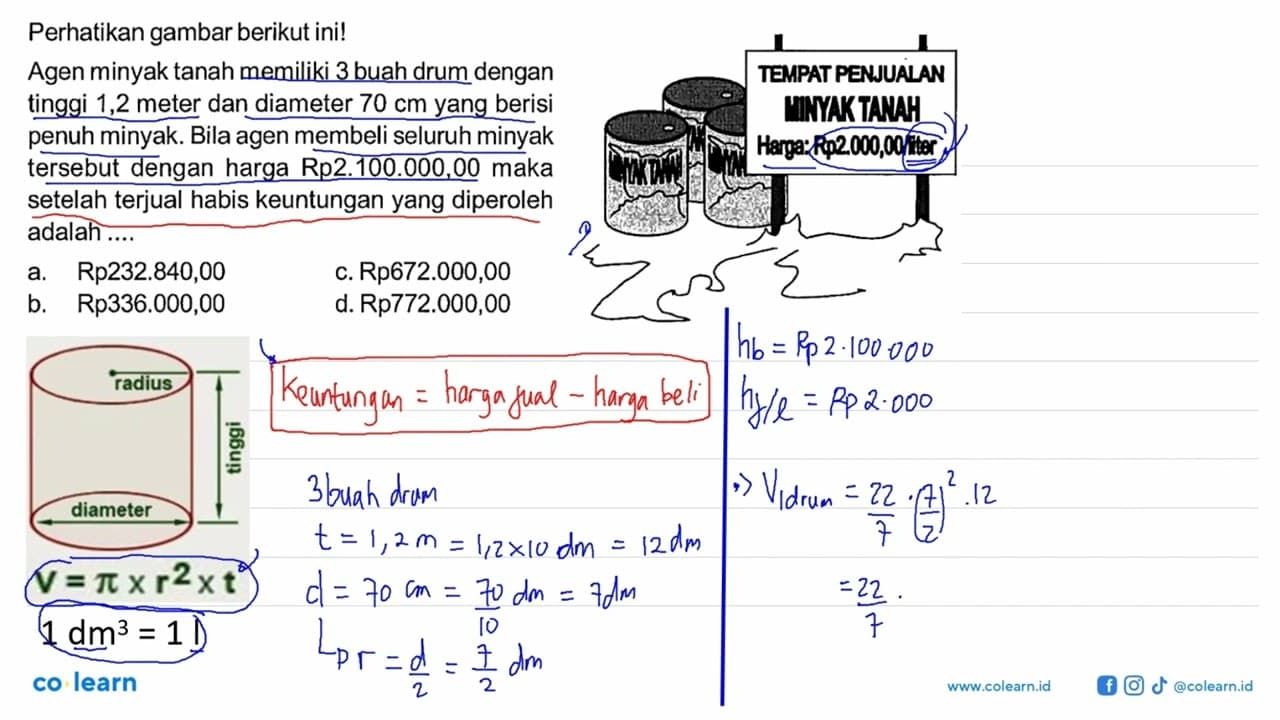 Perhatikan gambar berikut ini!
Agen minyak tanah memiliki 3 buah drum dengan
tinggi 1,2 meter dan diameter 70 cm yang berisi
penuh minyak. Bila agen membeli seluruh minyak
tersebut dengan harga Rp2.100.000,00 maka
setelah terjual habis keuntungan yang diperoleh
adalah ....
a. Rp232.840,00
c. Rp672.000,00
b. Rp336.000,00
d. Rp772.000,00
TEMPAT PENJUALAN
MINYAK TANAH
Harga: Rp2.000,00/liter
MINYAK TANAH
radius
tinggi
diameter
V = π x r² x t
1 dm³ = 1 l
Keuntungan = harga jual - harga beli
3 buah drum
t = 1,2 m = 1,2 x 10 dm = 12 dm
d = 70 cm = 70/10 dm = 7 dm
r = d/2 = 7/2 dm
hb = Rp 2.100.000
hj/l = Rp 2.000
•> V1drum = 22/7 . (7/2)² . 12
= 22/7 .
co learn
www.colearn.id
@colearn.id